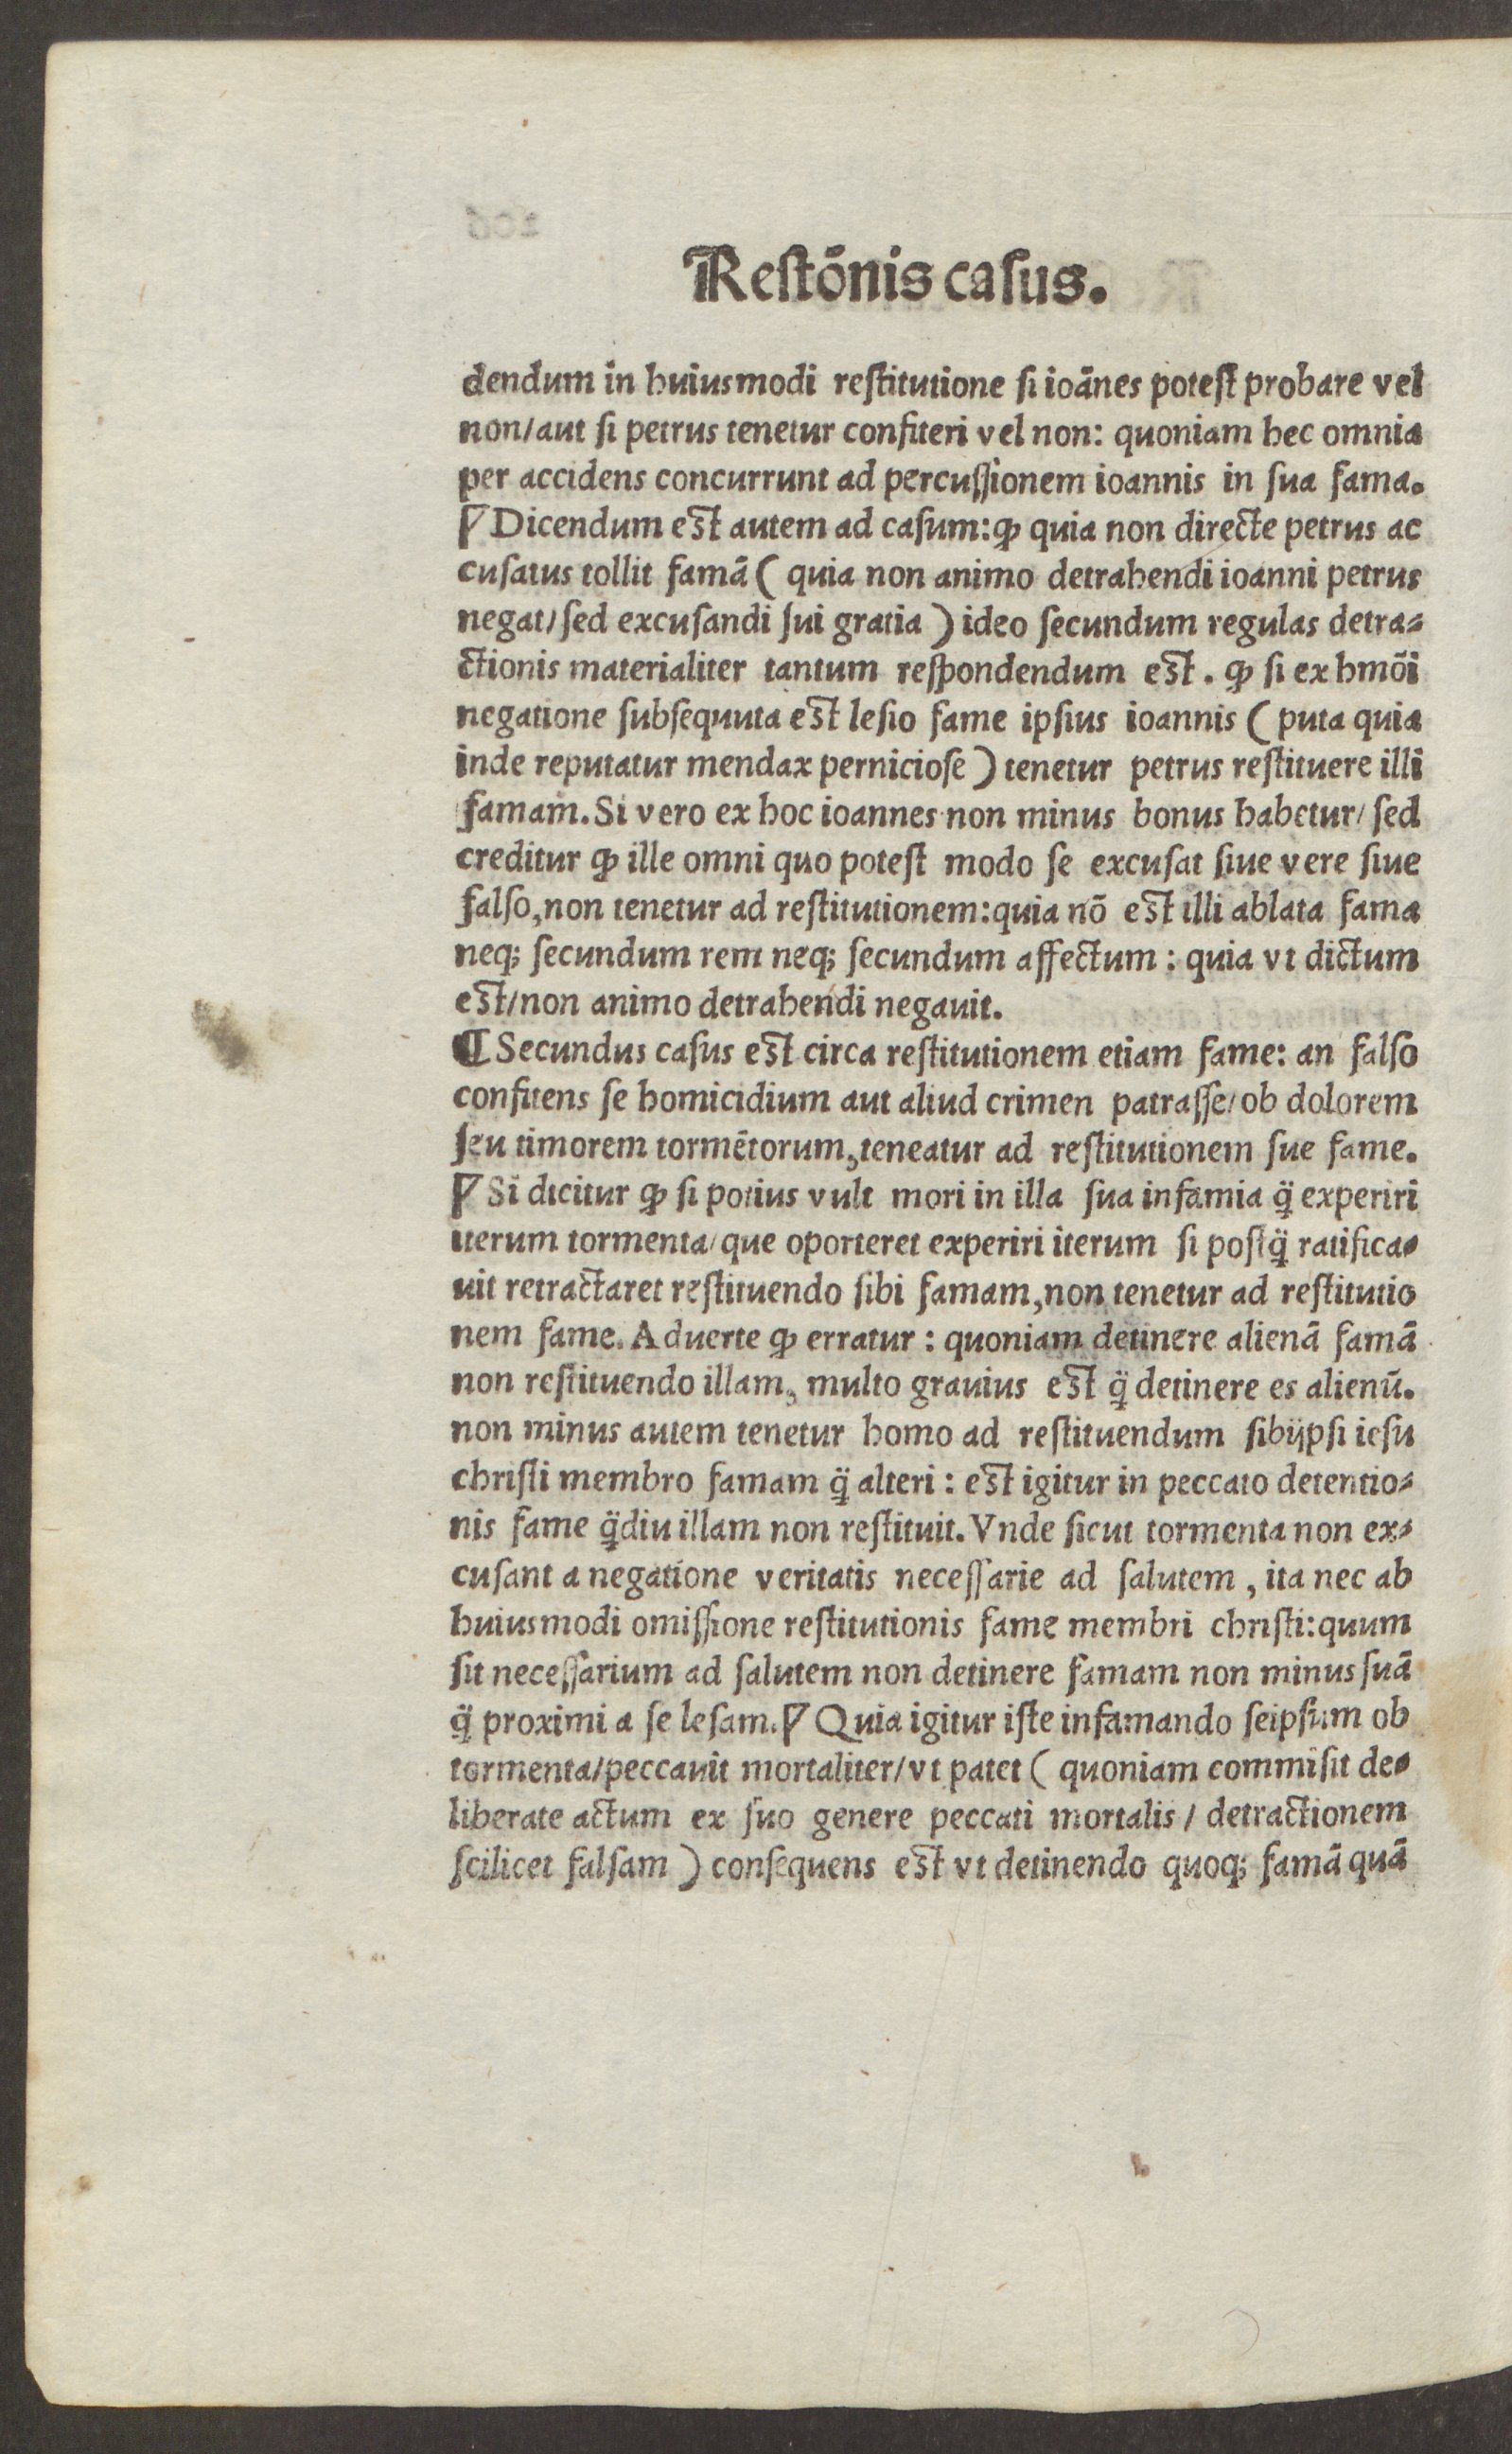 Restōnis casus.
dendum in huiusmodi restitutione si ioānes potest probare vel
non/aut si petrus tenetur confiteri vel non: quoniam hec omnia
per accidens concurrunt ad percussionem ioannis in sua fama.
Dicendum est autem ad casum: ꝙ quia non directe petrus ac
cusatus tollit famā ( quia non animo detrahendi ioanni petrus
negat/sed excusandi sui gratia ) ideo secundum regulas detra⸗
ctionis materialiter tantum respondendum est. ꝙ si ex hmōi
negatione subsequuta est lesio fame ipsius ioannis ( puta quia
inde reputatur mendax perniciose ) tenetur petrus restituere illi
famam. Si vero ex hoc ioannes non minus bonus habetur/ sed
creditur ꝙ ille omni quo potest modo se excusat siue vere siue
falso, non tenetur ad restitutionem: quia nō est illi ablata fama
neq; secundum rem neq; secundum affectum : quia vt dictum
est/non animo detrahendi negauit.
¶ Secundus casus est circa restitutionem etiam fame: an falso
confitens se homicidium aut aliud crimen patrasse/ ob dolorem
seu timorem tormētorum, teneatur ad restitutionem sue fame.
Si dicitur ꝙ si potius vult mori in illa sua infamia q̈ experiri
iterum tormenta/ que oporteret experiri iterum si postq̈ ratifica⸗
uit retractaret restituendo sibi famam, non tenetur ad restitutio
nem fame. Aduerte ꝙ erratur : quoniam detinere alienā famā
non restituendo illam, multo grauius est q̈ detinere es alienū.
non minus autem tenetur homo ad restituendum sibijpsi iesu
christi membro famam q̈ alteri : est igitur in peccato detentio⸗
nis fame q̈diu illam non restituit. Vnde sicut tormenta non ex⸗
cusant a negatione veritatis necessarie ad salutem , ita nec ab
huiusmodi omissione restitutionis fame membri christi: quum
sit necessarium ad salutem non detinere famam non minus suā
q̈ proximi a se lesam. Quia igitur iste infamando seipsum ob
tormenta/peccauit mortaliter/vt patet ( quoniam commisit de⸗
liberate actum ex suo genere peccati mortalis / detractionem
scilicet falsam ) consequens est vt detinendo quoq; famā quā